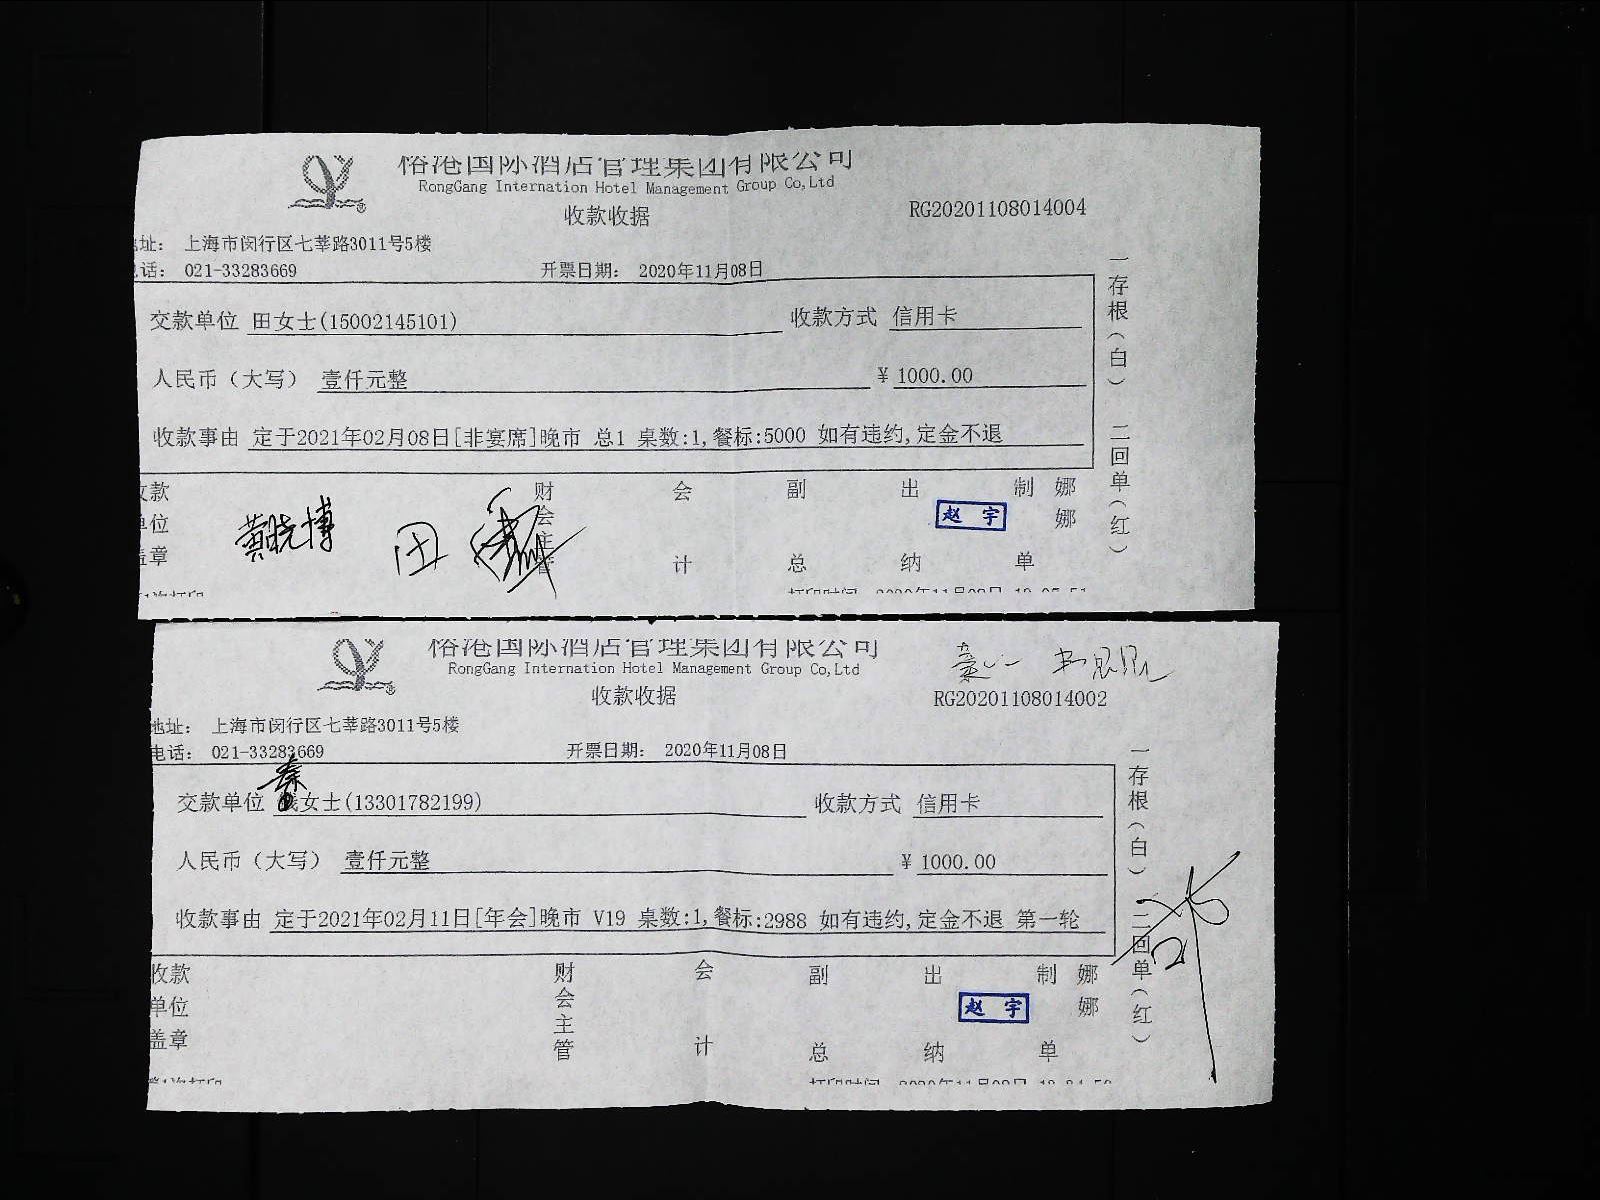 裕港国际酒店管理集团有限公司
RongGang Internation Hotel Management Group Co,Ltd
收款收据
RG20201108014004
地址： 上海市闵行区七莘路3011号5楼
电话： 021-33283669 开票日期： 2020年11月08日
交款单位 田女士(15002145101) 收款方式 信用卡
人民币（大写） 壹仟元整 ¥ 1000.00
收款事由 定于2021年02月08日[非宴席]晚市 总1 桌数:1,餐标:5000 如有违约,定金不退
一存根（白） 二回单（红）
收款单位盖章 财会主管 会计 副总 出纳 赵宇 制单 娜娜
黄晓博 田
第1次打印 打印时间 2020年11月08日
裕港国际酒店管理集团有限公司
RongGang Internation Hotel Management Group Co,Ltd
收款收据
RG20201108014002
地址： 上海市闵行区七莘路3011号5楼
电话： 021-33283669 开票日期： 2020年11月08日
秦
交款单位 女士(13301782199) 收款方式 信用卡
人民币（大写） 壹仟元整 ¥ 1000.00
收款事由 定于2021年02月11日[年会]晚市 V19 桌数:1,餐标:2988 如有违约,定金不退 第一轮
一存根（白） 二回单（红）
收款单位盖章 财会主管 会计 副总 出纳 赵宇 制单 娜娜
第1次打印 打印时间 2020年11月08日